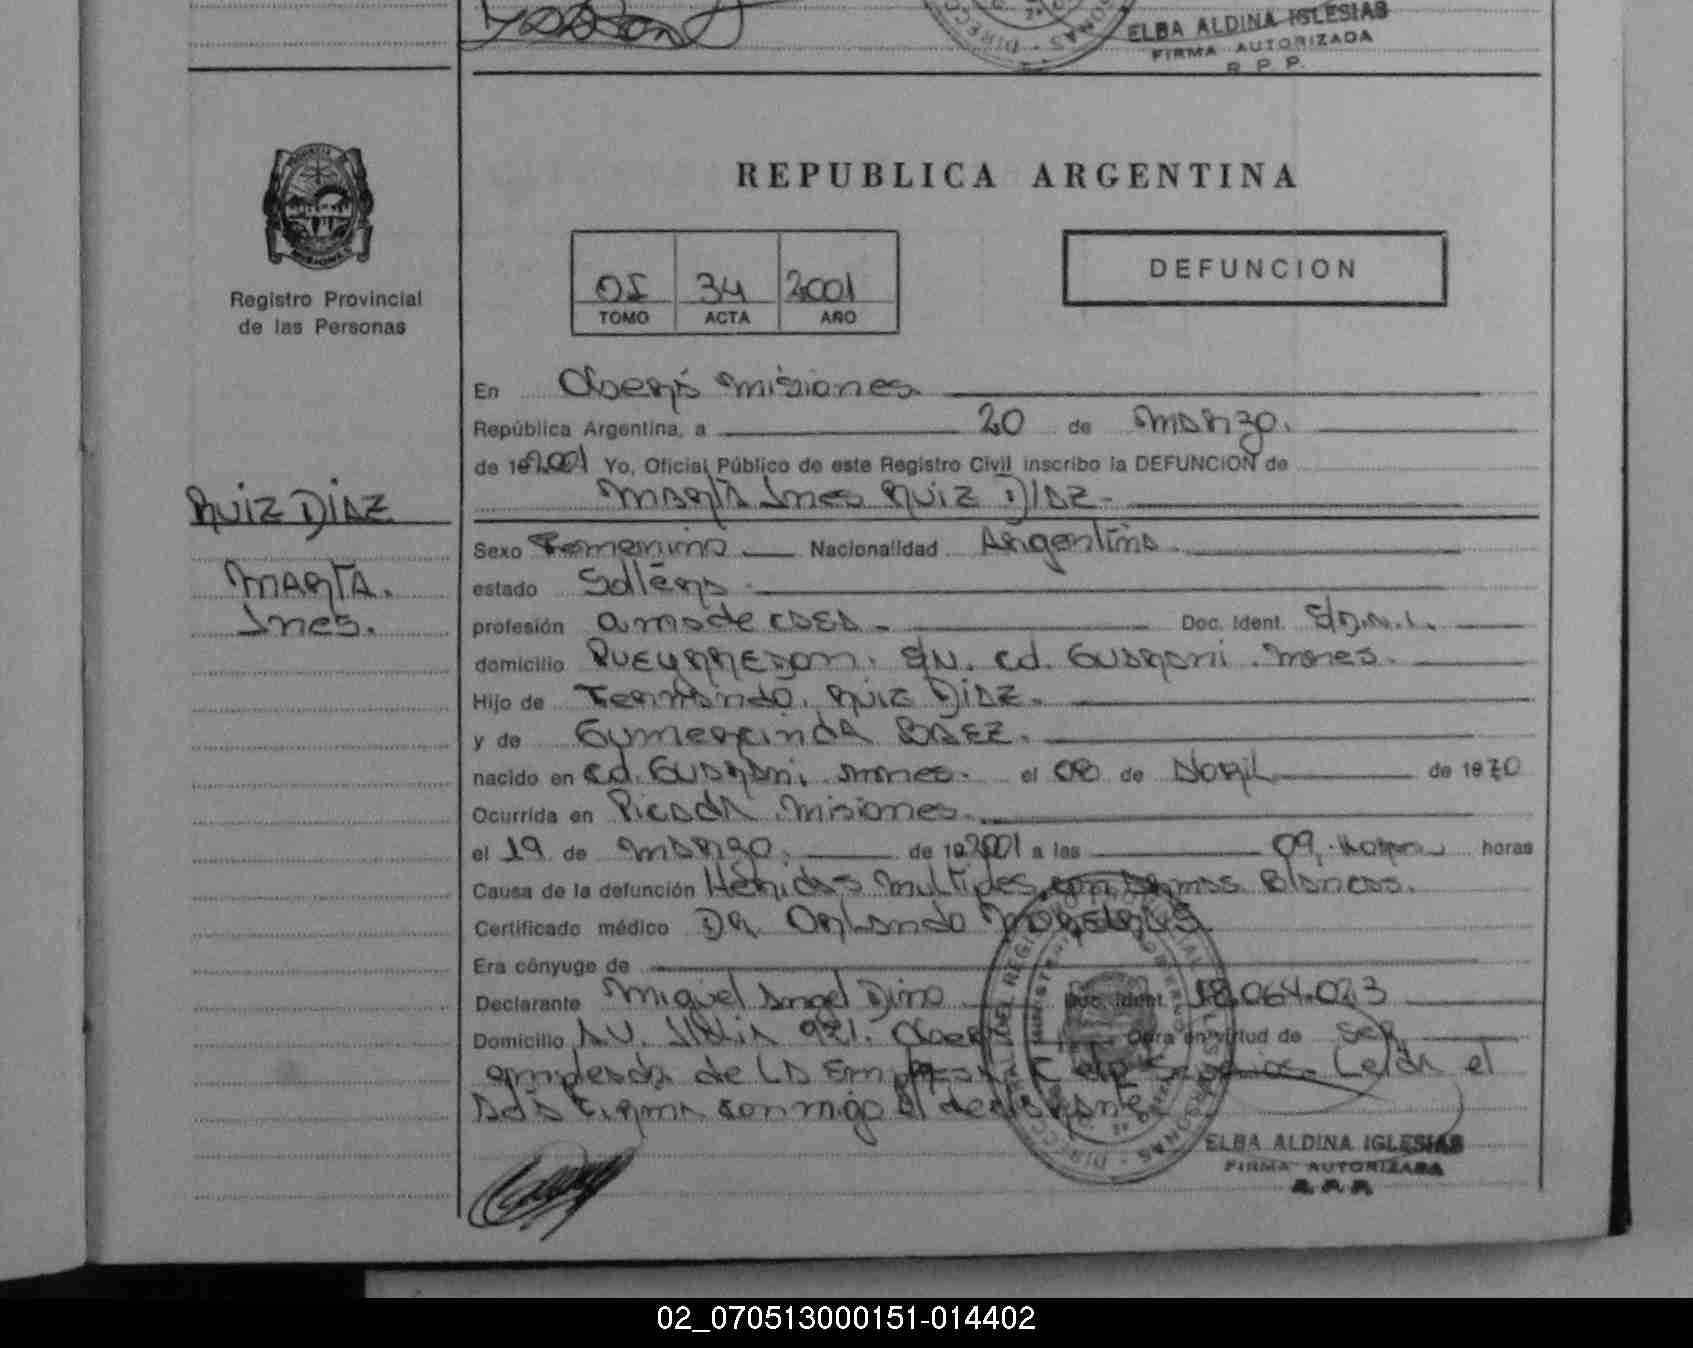 ELBA ALDINA IGLESIAS
FIRMA AUTORIZADA
R. P. P.
REPUBLICA ARGENTINA
Registro Provincial
de las Personas
05 34 2001
TOMO ACTA AÑO
DEFUNCION
En Oberá misiones.
República Argentina, a 20 de marzo.
de 192001 Yo, Oficial Público de este Registro Civil inscribo la DEFUNCION de
Marta Ines Ruiz Diaz.
RUIZ DIAZ
MARTA.
Ines.
Sexo Femenino Nacionalidad Argentina
estado Soltera
profesión ama de casa Doc. Ident. S/D.N.I.
domicilio Pueyrredon. S/N. cd. Guarani. mnes.
Hijo de Fernando. Ruiz Diaz.
y de Gumercinda Baez.
nacido en cd. Guarani, mnes. el 08 de Abril de 1970
Ocurrida en Picada misiones.
el 19 de marzo. de 192001 a las 09, horas
Causa de la defunción Heridas multiples con armas Blancas.
Certificado médico Dr. Orlando
Era cónyuge de
Declarante Miguel Angel Dino Doc. Ident. 18.064.023
Domicilio AV. Italia 921. Oberá Obra en virtud de ser
empleado de la Empresa Servicios. Leida el
acta firma conmigo el declarante
ELBA ALDINA IGLESIAS
FIRMA AUTORIZADA
R. P. P.
02_070513000151-014402